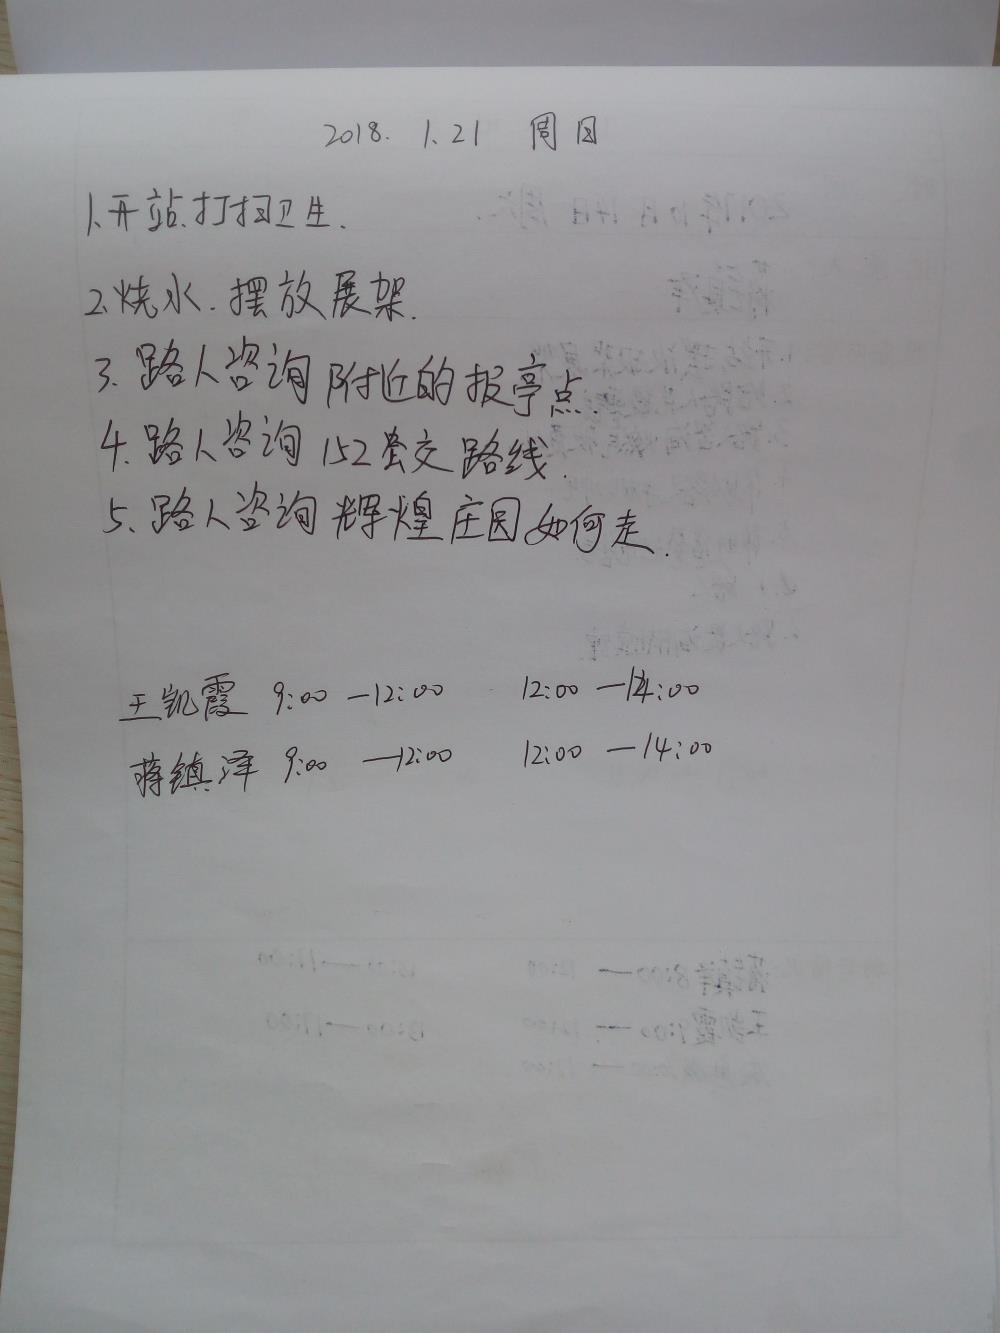 2018. 1.21 周日
1.开站.打扫卫生.
2.烧水.摆放展架.
3.路人咨询附近的报亭点.
4.路人咨询152公交路线.
5.路人咨询辉煌庄园如何走.
王凯霞 9:00 —12:00 12:00 —14:00
蒋镇泽 9:00 —12:00 12:00 —14:00